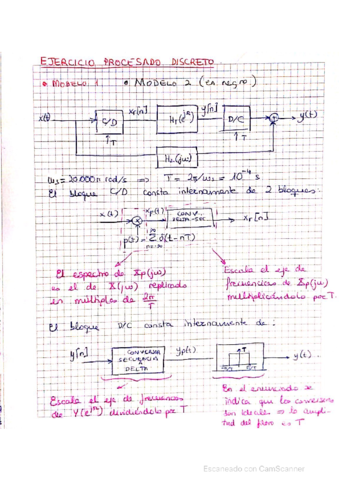 EJERCICIO PROCESADO DISCRETO
• MODELO 1. • MODELO 2 (en negro)
x(t) C/D xr[n] H1(e^jΩ) y[n] D/C + y(t)
↑T ↑T
H2(jω)
ωs = 20.000π rad/s ⇒ T = 2π/ωs = 10^-4 s
El bloque C/D consta internamente de 2 bloques:
x(t) × xp(t) CONV. DELTA-SEC. xr[n]
p(t) = Σ δ(t-nT)
n=-∞
El espectro de Xp(jω)
es el de X(jω) replicado
en múltiplos de 2π/T
Escala el eje de
frecuencias de Xp(jω)
multiplicándolo por T.
El bloque D/C consta internamente de:
y[n] CONVERSA SECUENCIA A DELTA yp(t) T y(t)
Escala el eje de frecuencias
de Y(e^jΩ) dividiéndolo por T
En el enunciado se
indica que los conversores
son ideales ⇒ la ampli-
tud del filtro es T
Escaneado con CamScanner